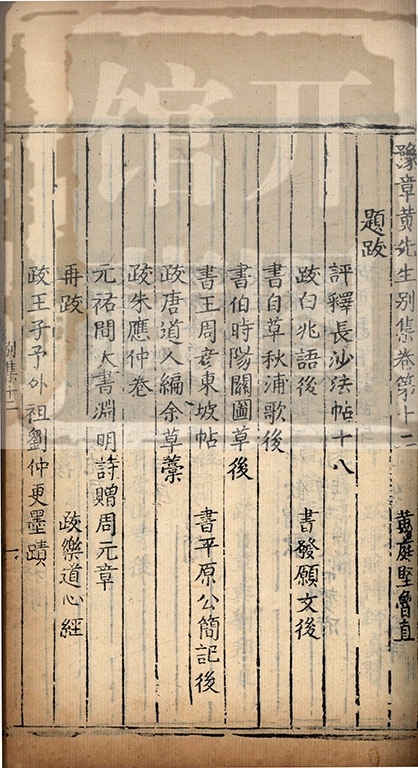 豫章黃先生別集卷第十二 黃庭堅魯直
題跋
評釋長沙法帖十八
跋白兆語後 書發願文後
書自草秋浦歌後
書伯時陽關圖草後
書王周彥東坡帖 書平原公簡記後
跋唐道人編余草藁
跋朱應仲卷
元祐間大書淵明詩贈周元章
再跋 跋樂道心經
跋王子予外祖劉仲更墨蹟
別集十二 一